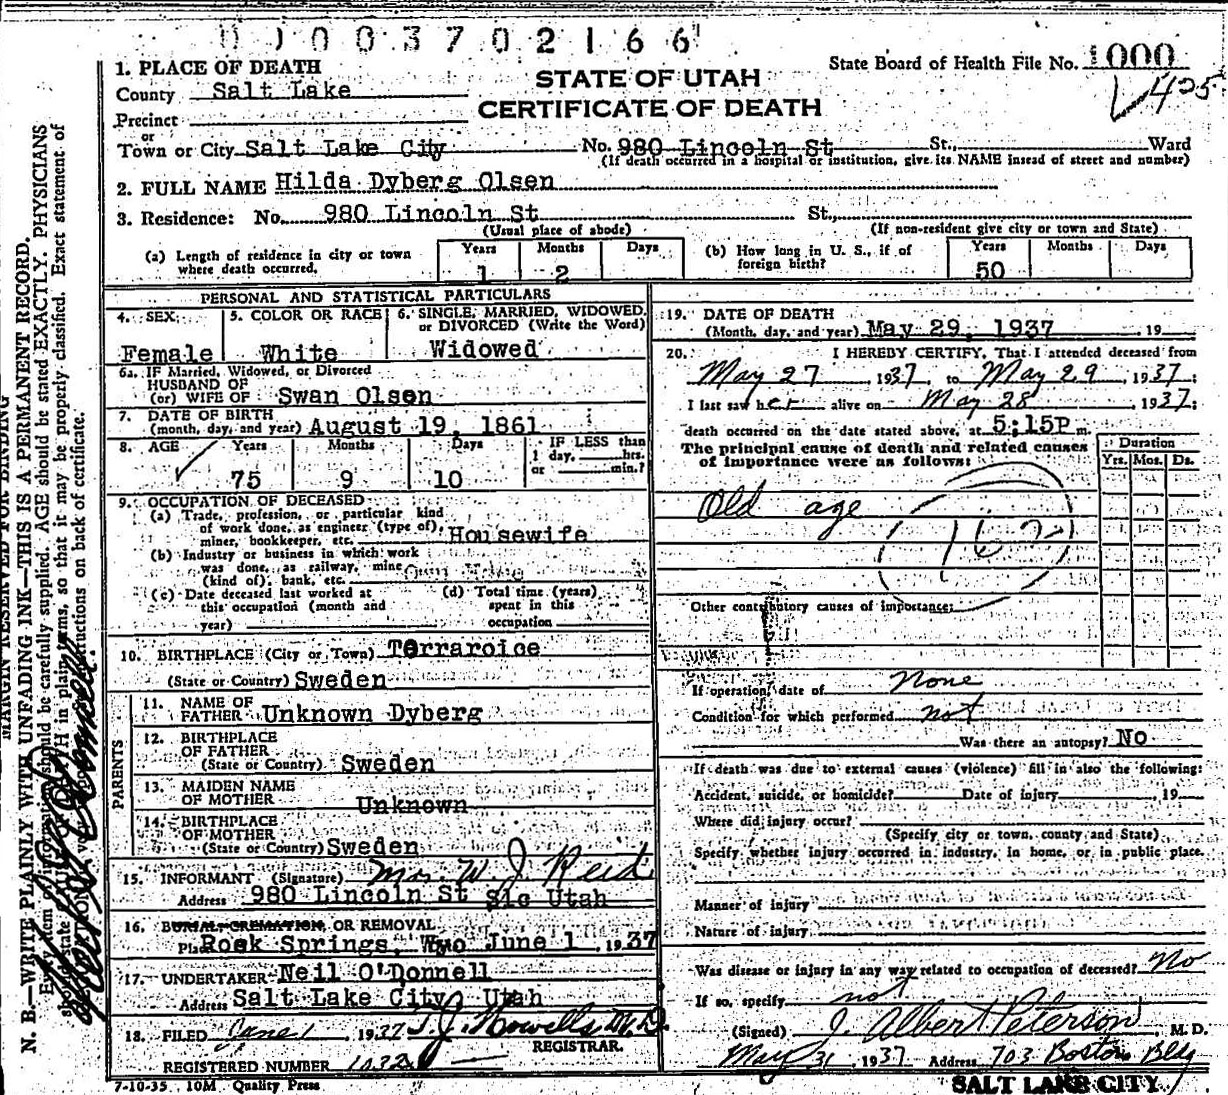 0003702166
1. PLACE OF DEATH
STATE OF UTAH
CERTIFICATE OF DEATH
State Board of Health File No. 1000
425
County Salt Lake
Precinct
or
Town or City Salt Lake City No. 980 Lincoln St St., Ward
(If death occurred in a hospital or institution, give its NAME instead of street and number)
2. FULL NAME Hilda Dyberg Olsen
3. Residence: No. 980 Lincoln St St.,
(Usual place of abode) (If non-resident give city or town and State)
(a) Length of residence in city or town where death occurred. Years 1 Months 2 Days
(b) How long in U. S., if of foreign birth? Years 50 Months Days
PERSONAL AND STATISTICAL PARTICULARS
4. SEX Female
5. COLOR OR RACE White
6. SINGLE, MARRIED, WIDOWED, or DIVORCED (Write the Word) Widowed
6a. IF Married, Widowed, or Divorced
HUSBAND OF
(or) WIFE OF Swan Olsen
7. DATE OF BIRTH
(month, day, and year) August 19, 1861
8. AGE Years 75 Months 9 Days 10 IF LESS than 1 day, hrs. or min.?
9. OCCUPATION OF DECEASED
(a) Trade, profession, or particular kind
of work done, as engineer (type of),
miner, bookkeeper, etc. Housewife
(b) Industry or business in which work
was done, as railway, mine
(kind of), bank, etc. Own
(c) Date deceased last worked at this occupation (month and year)
(d) Total time (years) spent in this occupation
10. BIRTHPLACE (City or Town) Torraroice
(State or Country) Sweden
PARENTS
11. NAME OF FATHER Unknown Dyberg
12. BIRTHPLACE OF FATHER
(State or Country) Sweden
13. MAIDEN NAME OF MOTHER Unknown
14. BIRTHPLACE OF MOTHER
(State or Country) Sweden
15. INFORMANT (Signature) Mrs. W. J. Reid
Address 980 Lincoln St Slc Utah
16. BURIAL CREMATION, OR REMOVAL
Place Rock Springs, Wyo June 1, 1937
17. UNDERTAKER Neil O'Donnell
Address Salt Lake City Utah
18. FILED June 1 1937 T. J. Howells M.D.
REGISTRAR.
REGISTERED NUMBER 1032
7-10-35 10M Quality Press
19. DATE OF DEATH
(Month, day, and year) May 29, 1937 19
20. I HEREBY CERTIFY, That I attended deceased from
May 27 1937, to May 29, 1937;
I last saw her alive on May 28 1937;
death occurred on the date stated above, at 5:15P m.
The principal cause of death and related causes
of importance were as follows:
Duration
Yrs. Mos. Ds.
Old age
162
Other contributory causes of importance:
If operation, date of None
Condition for which performed not
Was there an autopsy? No
If death was due to external causes (violence) fill in also the following:
Accident, suicide, or homicide? Date of injury , 19
Where did injury occur?
(Specify city or town, county and State)
Specify whether injury occurred in industry, in home, or in public place.
Manner of injury
Nature of injury
Was disease or injury in any way related to occupation of deceased? No
If so, specify not
(Signed) J. Albert Peterson, M. D.
May 31 1937 Address 703 Boston Bldg
SALT LAKE CITY
MARGIN RESERVED FOR BINDING
N. B.—WRITE PLAINLY WITH UNFADING INK—THIS IS A PERMANENT RECORD.
Every item of information should be carefully supplied. AGE should be stated EXACTLY. PHYSICIANS
should state DEATH in plain terms, so that it may be properly classified. Exact statement of
instructions on back of certificate.